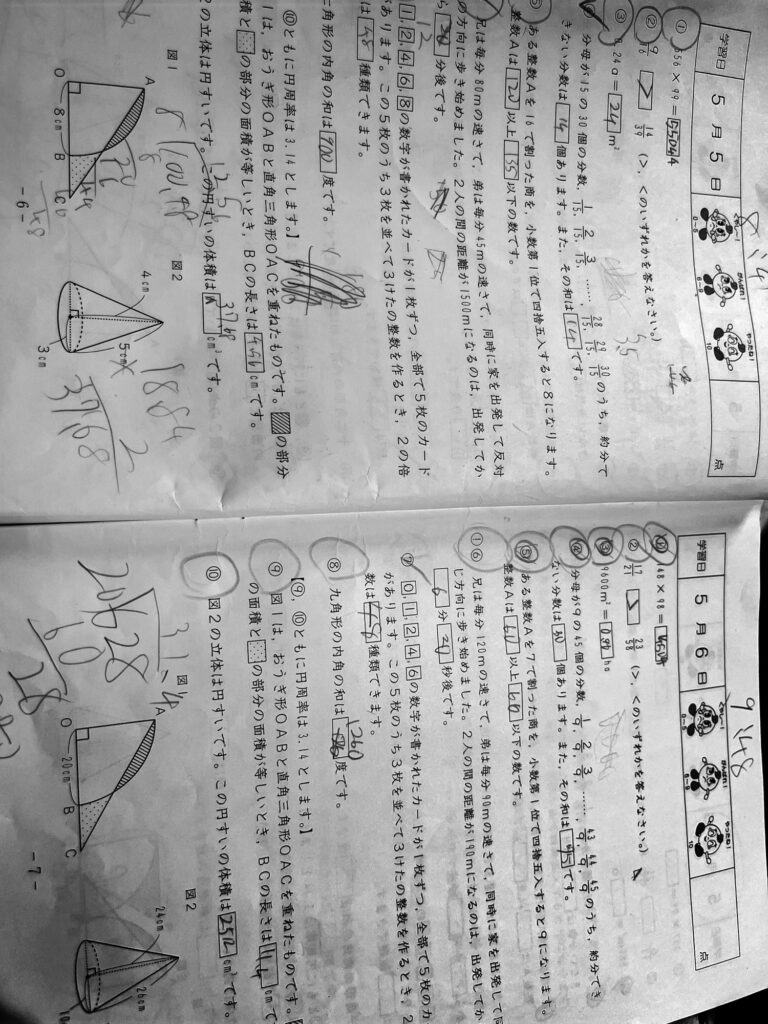 学習日 5月5日
0～5
6～9
10
点
① 556×99=55044
② 9/16 > 14/39 (>, <のいずれかを答えなさい。)
③ 0.24a=24m²
分母が15の30個の分数, 1/15, 2/15, 3/15, ……, 28/15, 29/15, 30/15 のうち, 約分で
きない分数は 個あります。また, その和は です。
⑤ ある整数Aを16で割った商を, 小数第1位で四捨五入すると8になります。
整数Aは120以上135以下の数です。
兄は毎分80mの速さで, 弟は毎分45mの速さで, 同時に家を出発して反対
の方向に歩き始めました。2人の間の距離が1500mになるのは, 出発してか
ら 12 分後です。
1, 2, 4, 6, 8の数字が書かれたカードが1枚ずつ, 全部で5枚のカード
があります。この5枚のうち3枚を並べて3けたの整数を作るとき, 2の倍
は48種類できます。
角形の内角の和は900度です。
⑩ともに円周率は3.14とします。】
1は, おうぎ形OABと直角三角形OACを重ねたものです。 の部分
積と の部分の面積が等しいとき, BCの長さは4.56cmです。
の立体は円すいです。この円すいの体積は37.68cm³です。
図1
A
O
8cm
B
図2
4cm
5cm
3cm
18.84
2
37.68
- 6 -
学習日 5月6日
0～5
6～9
10
点
9.48
① 148×98=
② 17/21 > 23/58 (>, <のいずれかを答えなさい。)
③ 9600m²= ha
④ 分母が9の45個の分数, 1/9, 2/9, 3/9, ……, 43/9, 44/9, 45/9 のうち, 約分でき
ない分数は30個あります。また, その和は75です。
⑤ ある整数Aを7で割った商を, 小数第1位で四捨五入すると9になります。
整数Aは 以上 以下の数です。
⑥ 兄は毎分120mの速さで, 弟は毎分90mの速さで, 同時に家を出発して同
じ方向に歩き始めました。2人の間の距離が190mになるのは, 出発してか
6分20秒後です。
⑦ 0, 1, 2, 4, 6の数字が書かれたカードが1枚ずつ, 全部で5枚のカ
があります。この5枚のうち3枚を並べて3けたの整数を作るとき, 2
数は 種類できます。
⑧ 九角形の内角の和は1260度です。
【⑨, ⑩ともに円周率は3.14とします。】
⑨ 図1は, おうぎ形OABと直角三角形OACを重ねたものです。
の面積と の部分の面積が等しいとき, BCの長さは11.4cmで
⑩ 図2の立体は円すいです。この円すいの体積は2512cm³です。
図1
A
O
20cm
B
C
図2
24cm
26cm
- 7 -